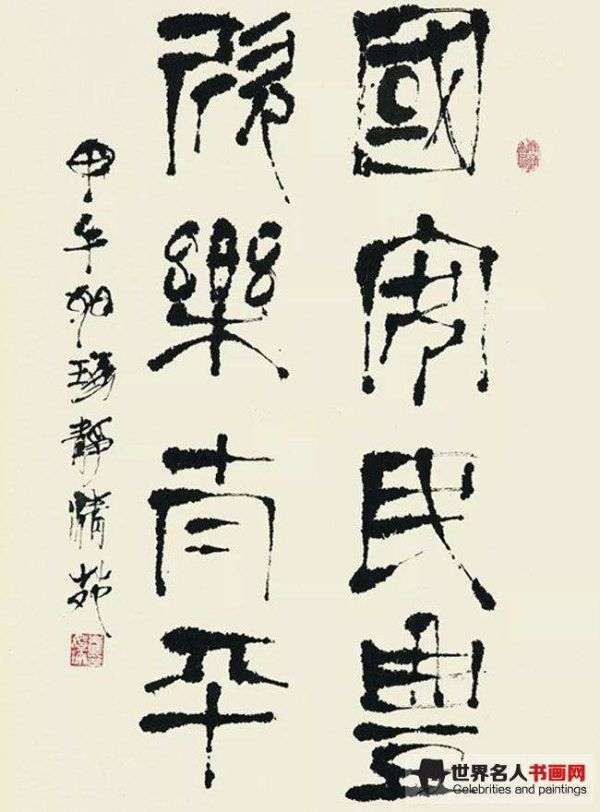 國安民豐
欣樂太平
甲午靜清苑
世界名人书画网
Celebrities and paintings